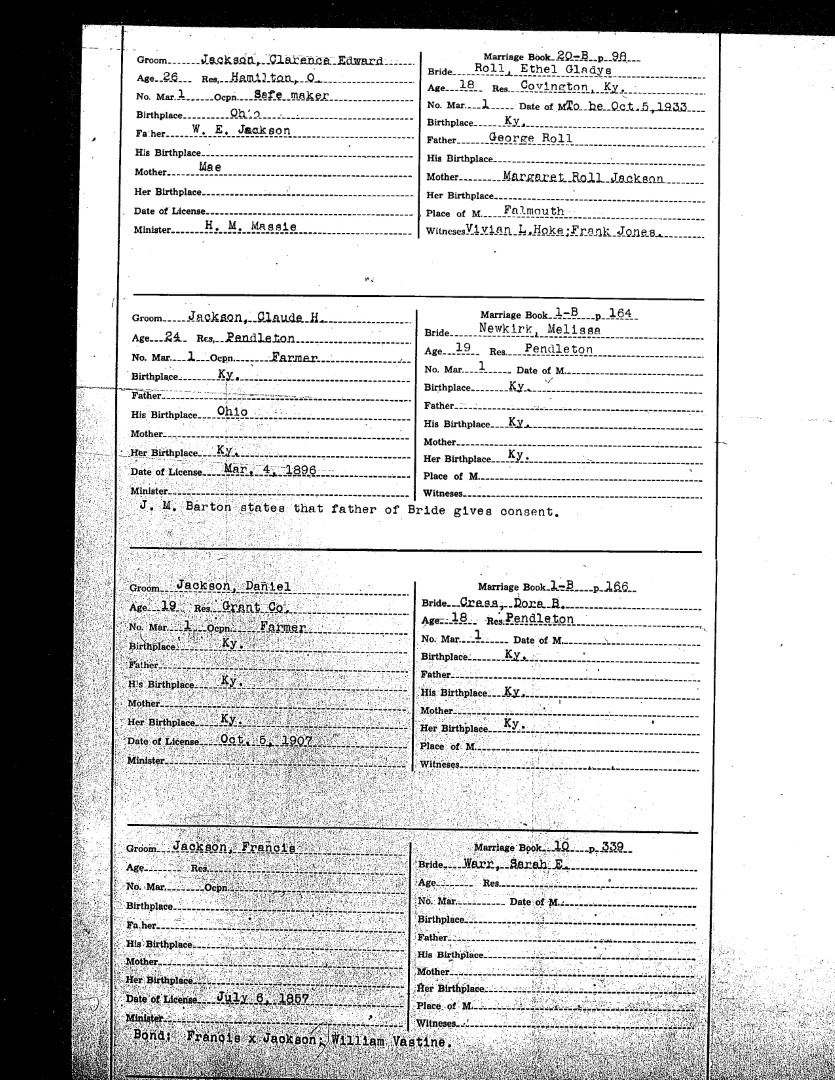 Groom Jackson, Clarence Edward
Age 26 Res. Hamilton, O.
No. Mar. 1 Ocpn. Safe maker
Birthplace Ohio
Father W. E. Jackson
His Birthplace
Mother Mae
Her Birthplace
Date of License
Minister H. M. Massie
Marriage Book 20-B p. 98
Bride Roll, Ethel Gladys
Age 18 Res. Covington, Ky.
No. Mar. 1 Date of M. To be Oct. 5, 1933
Birthplace Ky.
Father George Roll
His Birthplace
Mother Margaret Roll Jackson
Her Birthplace
Place of M. Falmouth
Witneses Vivian L. Hoke; Frank Jones.
Groom Jackson, Claude H.
Age 24 Res. Pendleton
No. Mar. 1 Ocpn. Farmer
Birthplace Ky.
Father
His Birthplace Ohio
Mother
Her Birthplace Ky.
Date of License Mar. 4, 1896
Minister
Marriage Book 1-B p. 164
Bride Newkirk, Melissa
Age 19 Res. Pendleton
No. Mar. 1 Date of M.
Birthplace Ky.
Father
His Birthplace Ky.
Mother
Her Birthplace Ky.
Place of M.
Witneses
J. M. Barton states that father of Bride gives consent.
Groom Jackson, Daniel
Age 19 Res. Grant Co.
No. Mar. 1 Ocpn. Farmer
Birthplace Ky.
Father
His Birthplace Ky.
Mother
Her Birthplace Ky.
Date of License Oct. 5, 1907
Minister
Marriage Book 1-B p. 166
Bride Crass, Dora B.
Age 18 Res. Pendleton
No. Mar. 1 Date of M.
Birthplace Ky.
Father
His Birthplace Ky.
Mother
Her Birthplace Ky.
Place of M.
Witneses
Groom Jackson, Francis
Age Res.
No. Mar. Ocpn.
Birthplace
Father
His Birthplace
Mother
Her Birthplace
Date of License July 6, 1857
Minister
Marriage Book 10 p. 339
Bride Warr, Sarah E.
Age Res.
No. Mar. Date of M.
Birthplace
Father
His Birthplace
Mother
Her Birthplace
Place of M.
Witneses
Bond: Francis x Jackson; William Vastine.